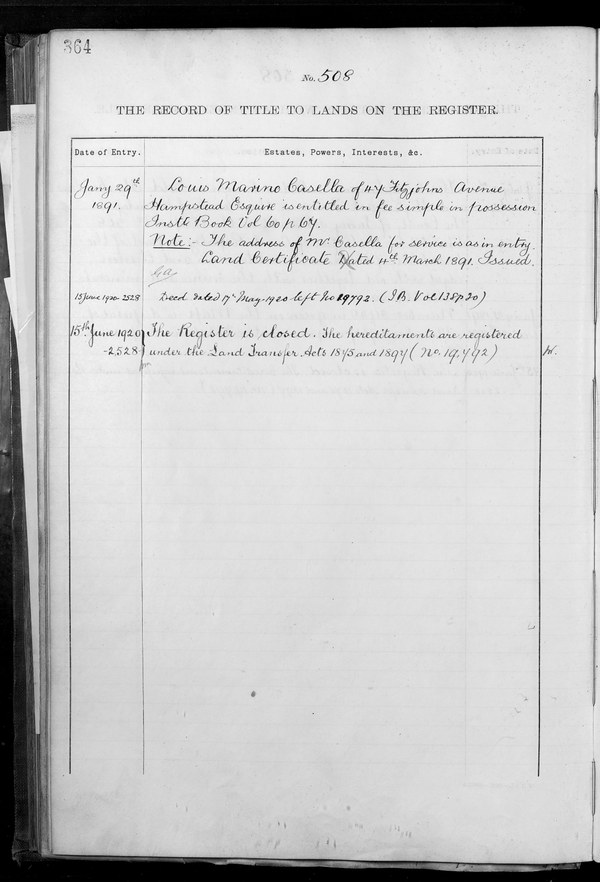 364
No. 508
THE RECORD OF TITLE TO LANDS ON THE REGISTER.
Date of Entry.
Estates, Powers, Interests, &c.
Jany 29th 1891.
Louis Marino Casella of 47 Fitzjohns Avenue
Hampstead Esquire is entitled in fee simple in possession
Instt Book Vol 60 p 67.
Note:- The address of Mr Casella for service is as in entry.
Land Certificate Dated 4th March 1891. Issued.
15 June 1920 2528
Deed dated 17 May 1920 left No 19792. (I.B. Vol 138 p 20)
15th June 1920
-2528
The Register is closed. The hereditaments are registered
under the Land Transfer Acts 1875 and 1897 (No. 19,792)